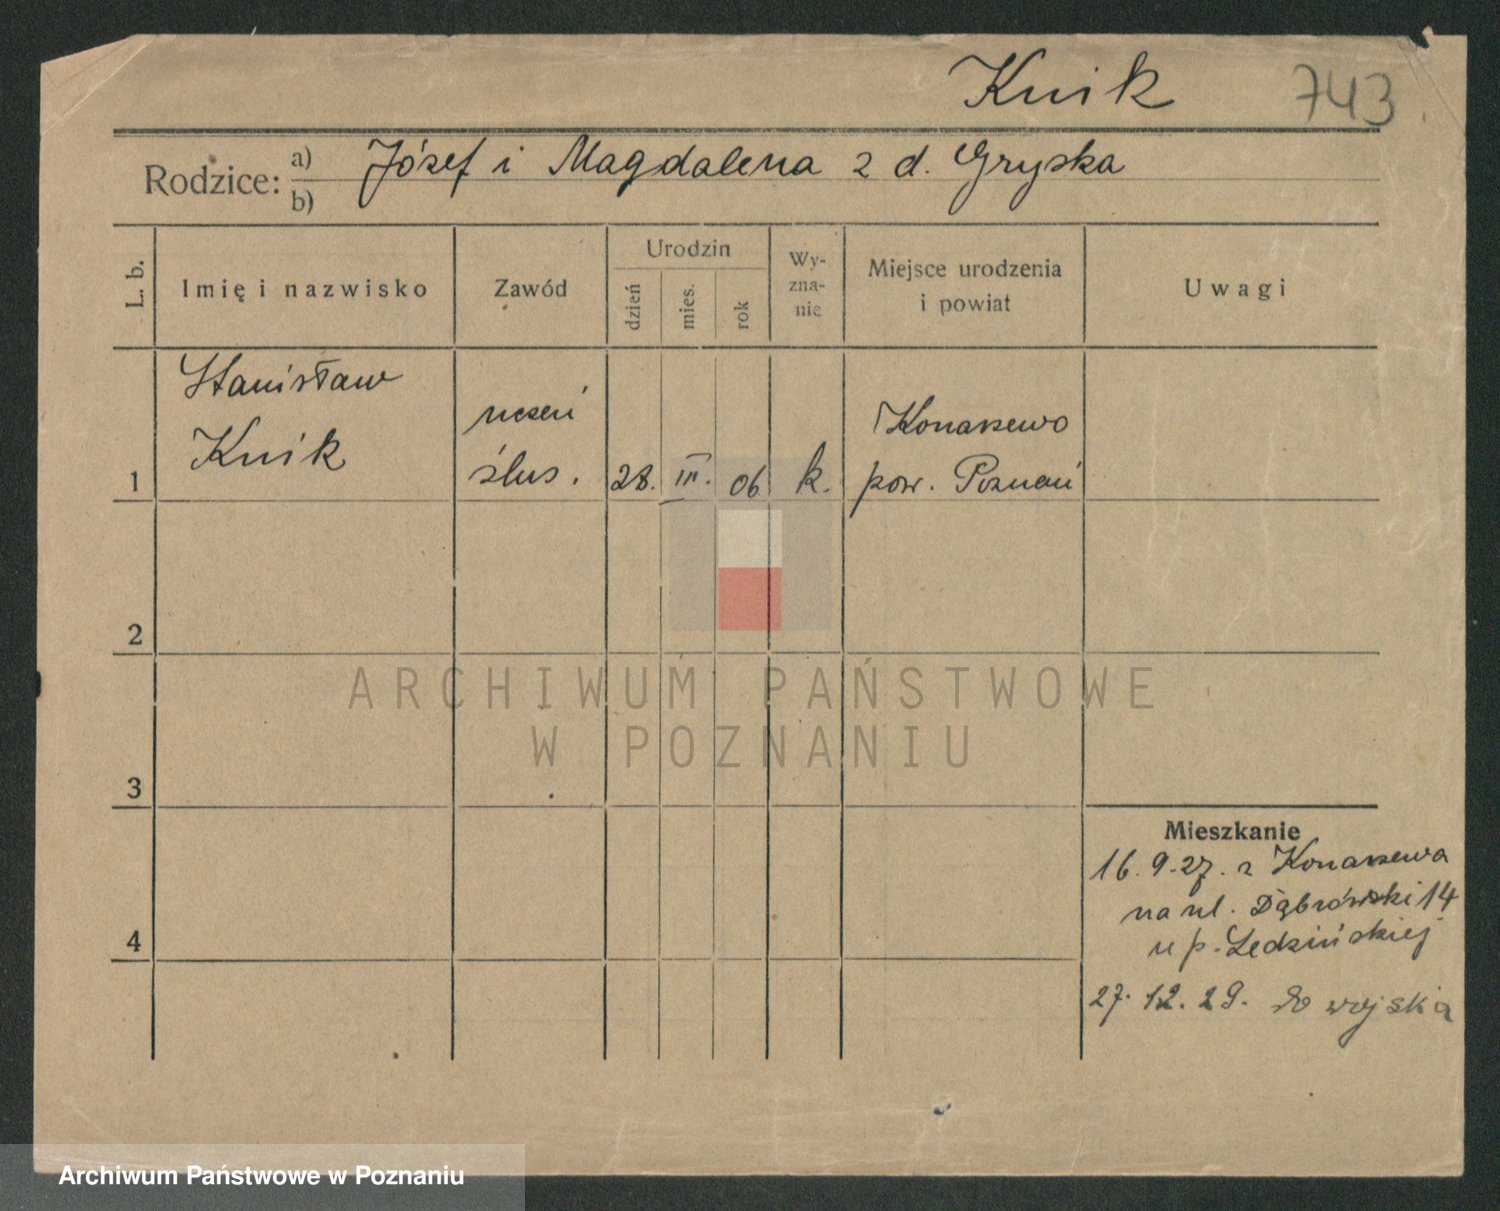 Knik 743
Rodzice: a) Józef i Magdalena z d. Gryska
b)
L. b.
Imię i nazwisko
Zawód
Urodzin
dzień
mies.
rok
Wy-
zna-
nie
Miejsce urodzenia
i powiat
Uwagi
Stanisław
Knik
uczeń
ślus.
28. III. 06
k.
Konarzewo
pow. Poznań
1
2
3
4
Mieszkanie
16. 9. 27. z Konarzewa
na ul. Dąbrówski 14
u p. Ledzińskiej
27. 12. 29. do wojska
ARCHIWUM PAŃSTWOWE
W POZNANIU
Archiwum Państwowe w Poznaniu